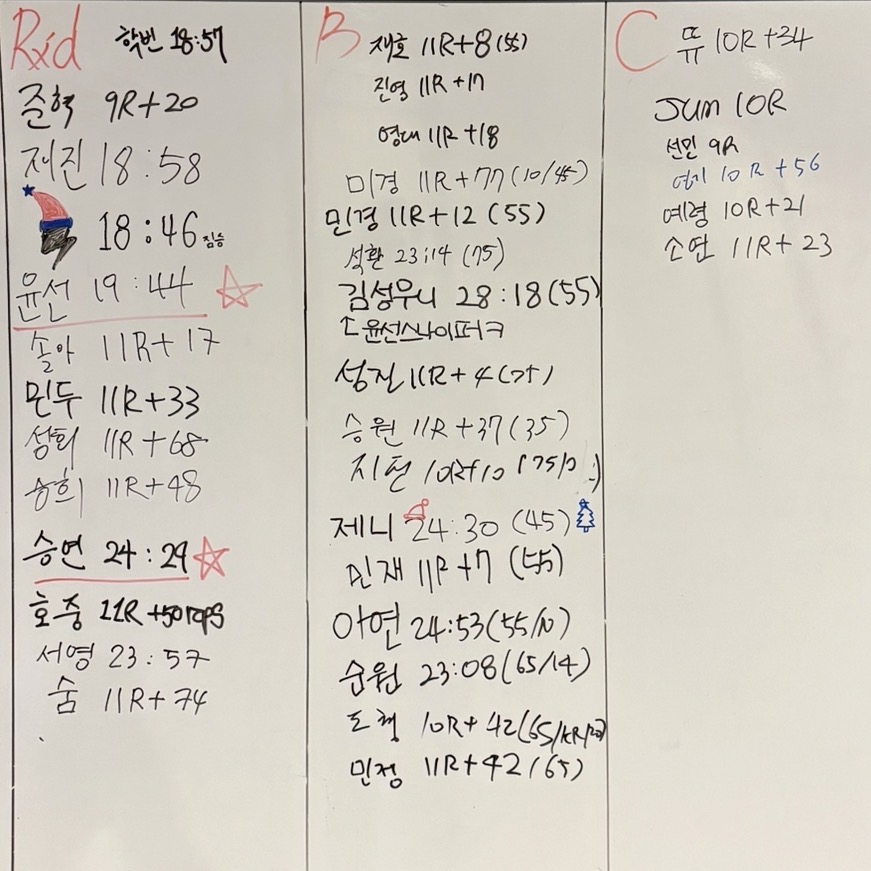 Rxd 학번 18:57
준혁 9R+20
재진 18:58
18:46 짐승
윤선 19:44
솔아 11R+17
민두 11R+33
성희 11R+68
승희 11R+48
승연 24:29
호중 11R+50reps
서영 23:57
숨 11R+74
B 재호 11R+8(55)
진영 11R+17
영대 11R+18
미경 11R+77(10/45)
민경 11R+12(55)
석환 23:14(75)
김성우니 28:18(55)
↑윤선스나이퍼ㅋ
성진 11R+4(75)
승원 11R+37(35)
10R+10
제니 24:30(45)
민재 11R+7(55)
아연 24:53(55/10)
순원 23:08(65/14)
10R+42
민정 11R+42(65)
C 뜌 10R+34
Jum 10R
선민 9R
10R+56
예령 10R+21
소연 11R+23